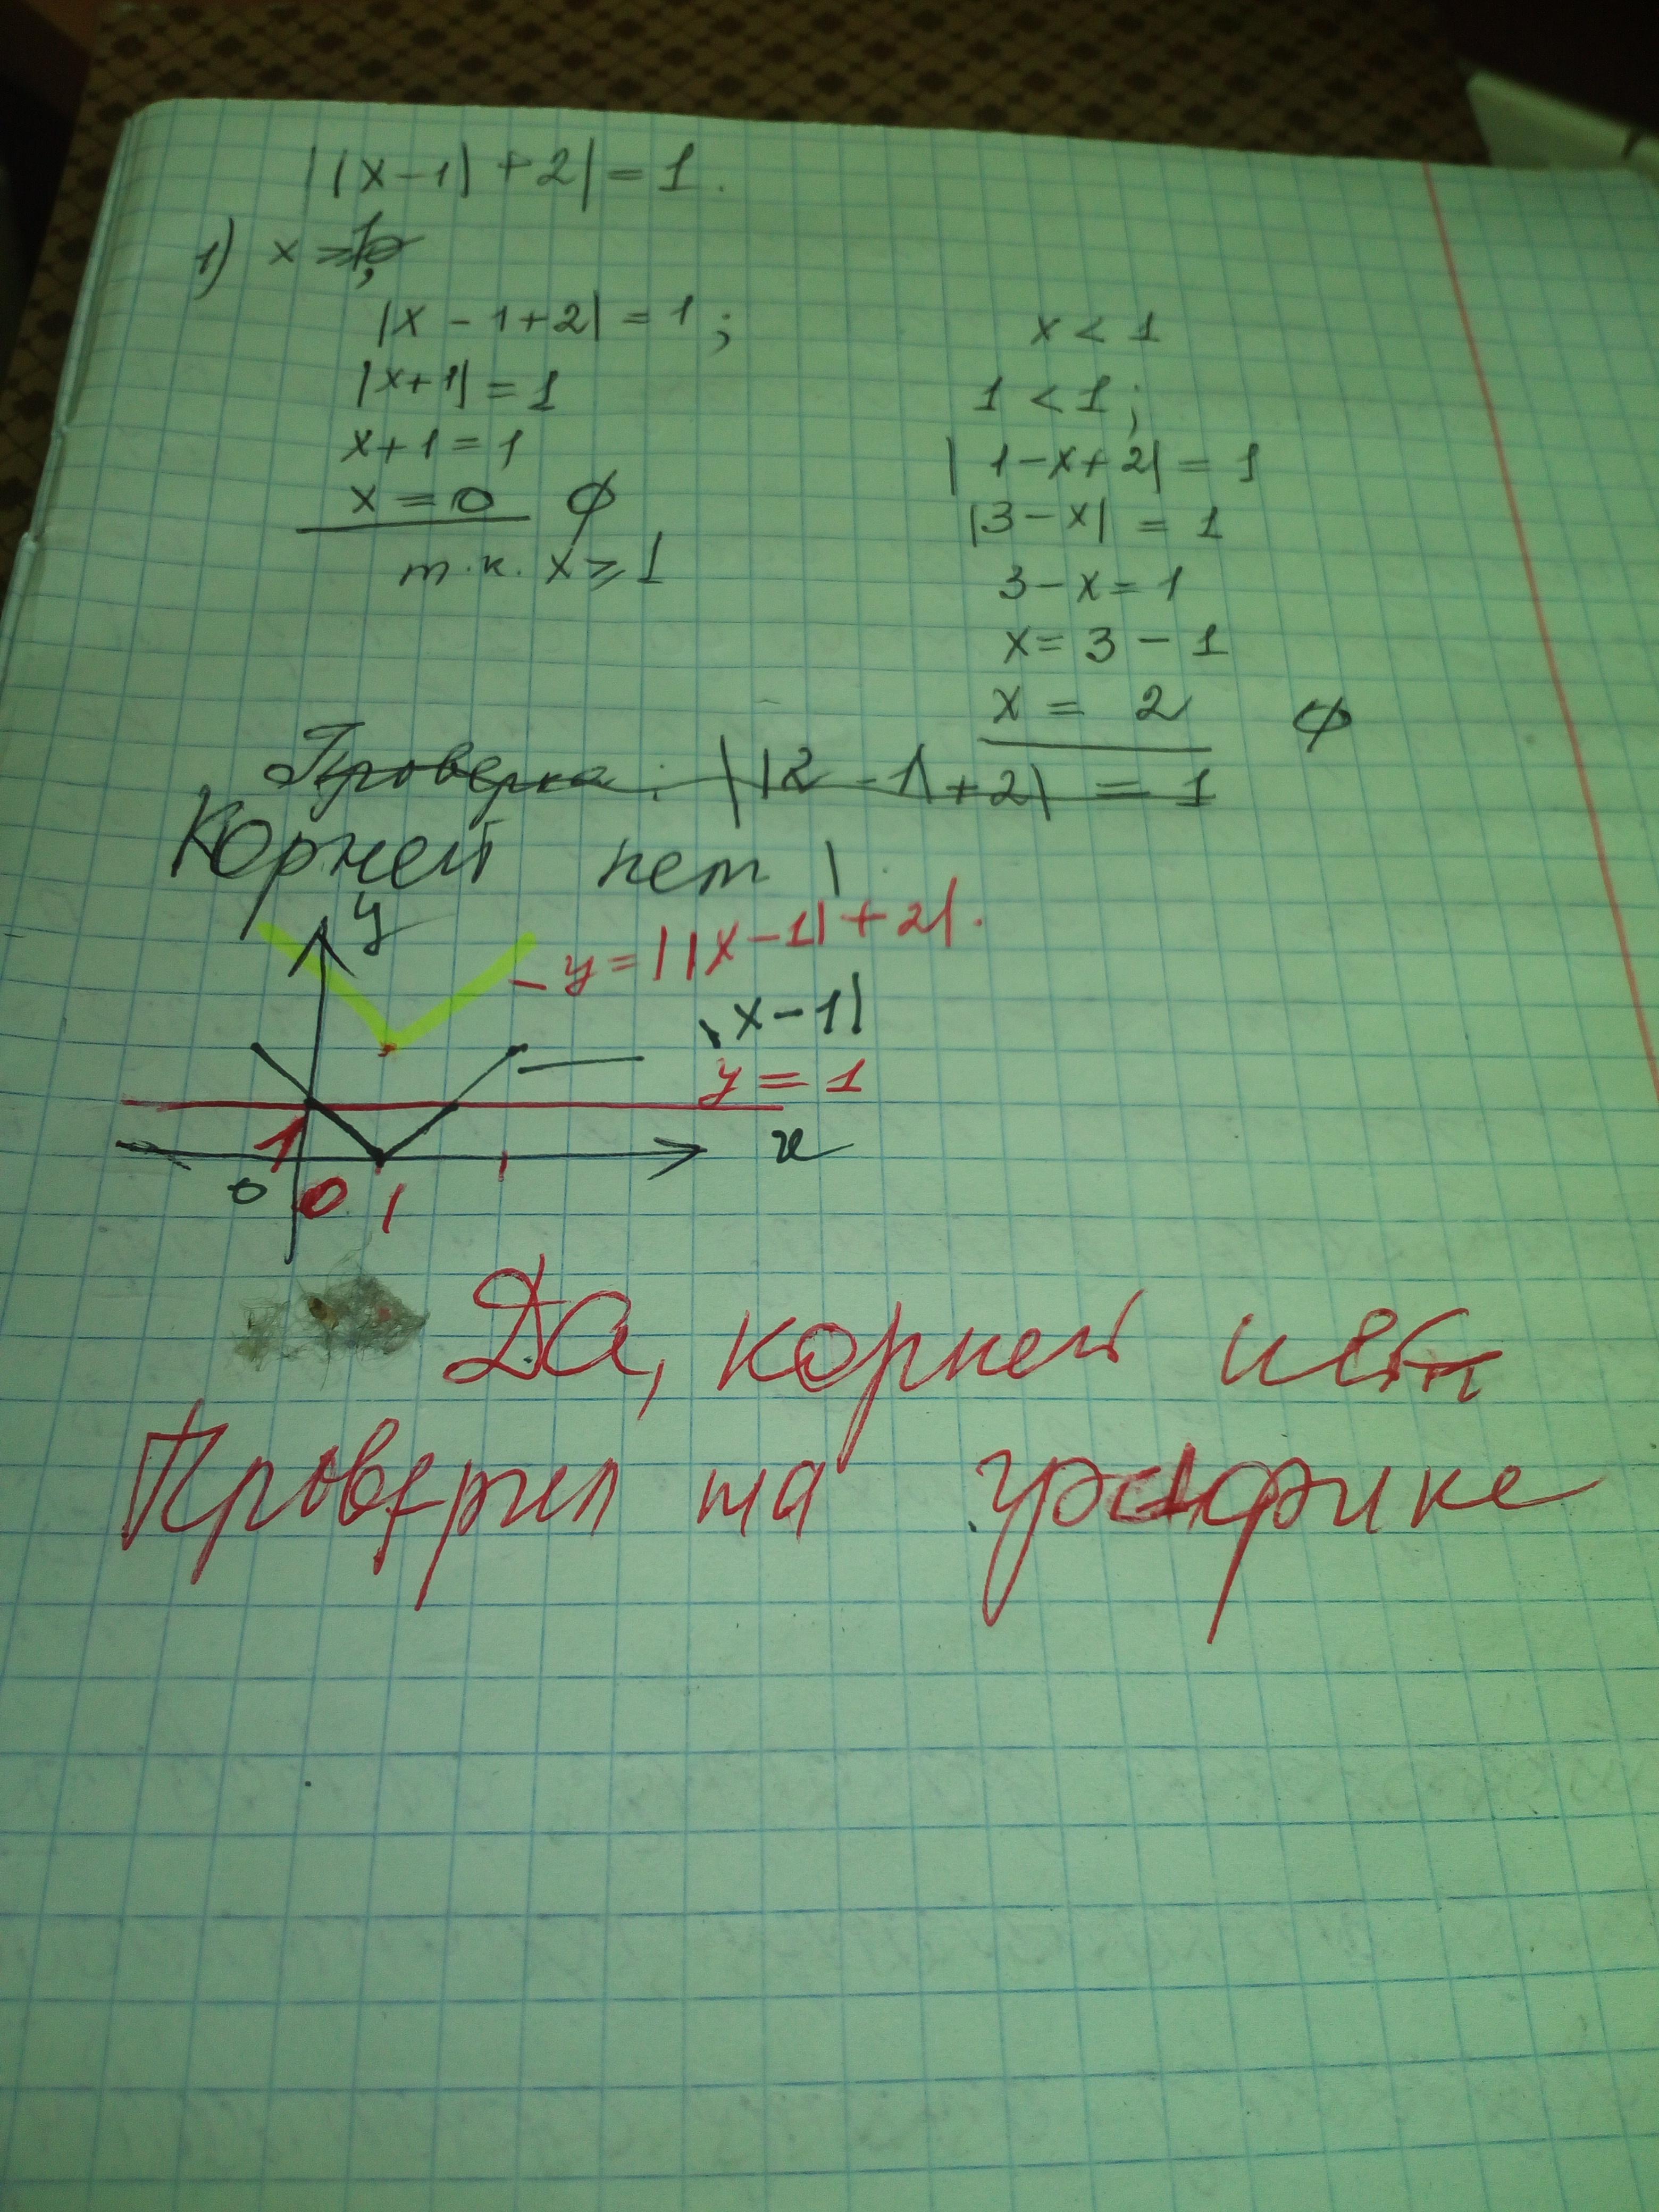 ||x-1|+2|=1.
1) x≥1;
|x-1+2|=1;
|x+1|=1
x+1=1
x=0 ∅
т.к. x≥1
x<1
1<1;
|1-x+2|=1
|3-x|=1
3-x=1
x=3-1
x=2 ∅
Проверка: ||2-1|+2|=1
Корней нет!
y
y=||x-1|+2|.
|x-1|
y=1
1
x
0 0 1
Да, корней нет
Проверил на графике